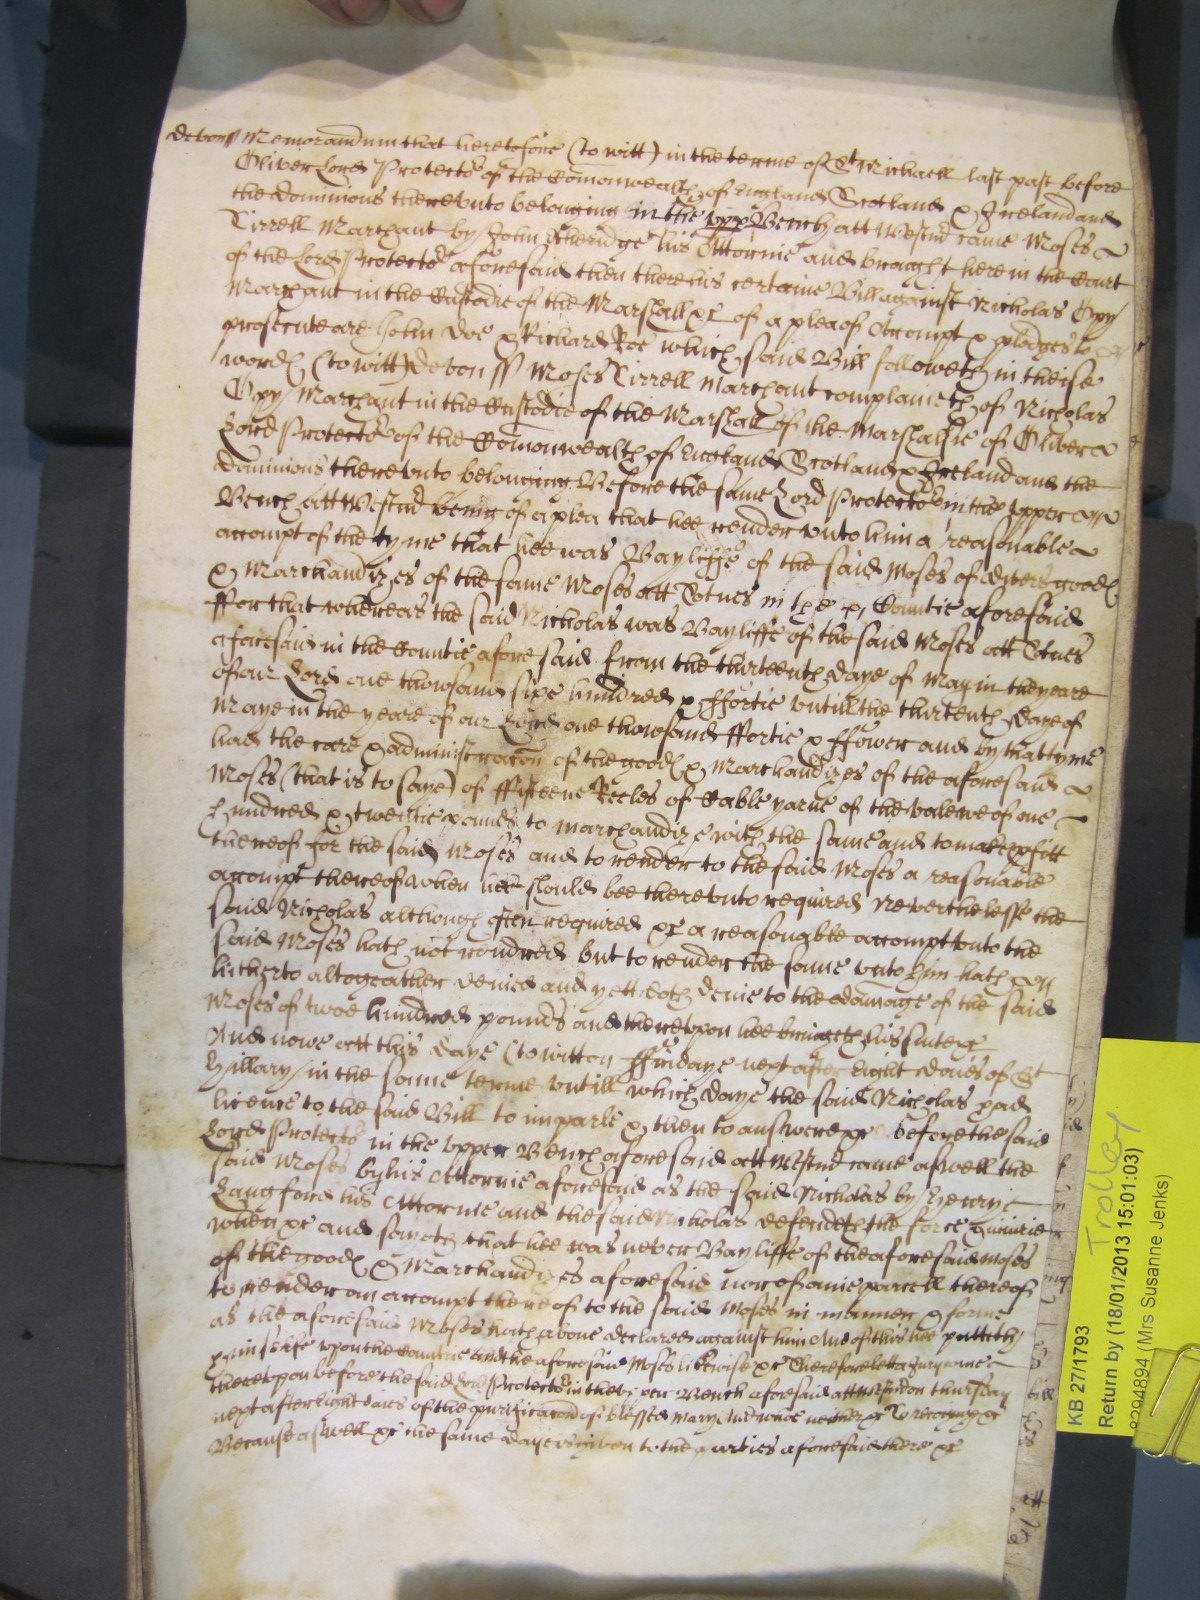 devon ss Memorandum that heretofore (to witt) in the terme of St Michaell last past before
Oliver Lord Protector of the Comonwealth of England Scotland & Ireland and
the dominions therevnto belonging in the vpp Bench att Westmr came Moses
Tirrell Marchant by John Etheridge his Attornie and brought here in the Court
of the Lord Protector aforesaid then there his certaine Bill against Nicholas Opy
Marchant in the Custodie of the Marshall &c of a plea of Accompt & pledges to
prosecute are John Doe & Richard Roe which said Bill followeth in theise
words (to witt) devon ss Moses Tirrell Marchant complaineth of Nicholas
Opy Marchant in the Custodie of the Marshall of the Marshalsie of Oliver
Lord Protector of the Comonwealth of England Scotland & Ireland and the
dominions therevnto belonging Before the same Lord Protector in the vpper
Bench att Westmr being of a plea that hee render vnto him a reasonable
accompt of the tyme that hee was Bayliffe of the said Moses of divers goods
& Marchandizes of the same Moses att Totnes in the Countie aforesaid
ffor that whereas the said Nicholas was Bayliffe of the said Moses att Totnes
aforesaid in the Countie aforesaid from the thirteenth daye of May in the yeare
of our Lord one thowsand sixe hundred & ffortie vntill the thirtenth daye of
Maye in the yeare of our Lord one thowsand ffortie & ffower and by that tyme
had the care & administracon of the goods & Marchandizes of the aforesaid
Moses (that is to saye) of ffifteene Reeles of Cable yarne of the valewe of one
hundred & twentie pounds to marchandize with the same and to make pfitt
thereof for the said Moses and to render to the said Moses a reasonable
accompt thereof when hee should bee therevnto required Neverthelesse the
said Nicholas although often required &c a reasonable accompt vnto the
said Moses hath not rendred but to render the same vnto him hath
hitherto altogeather denied and yett doth denie to the damage of the said
Moses of twoe hundred pounds and therevpon hee bringeth his suite &c
And nowe att this daye (to witt) on ffridaye next after Eight daies of St
Hillary in the same terme vntill which daye the said Nicholas had
licence to the said Bill to imparle & then to answere &c before the said
Lord Protector in the vpper Bench aforesaid att Westmr came aswell the
said Moses by his Attornie aforesaid as the said Nicholas by Henry
Langford his Attornie and the said Nicholas defendeth the force & iniurie
when &c and sayeth that hee was never Bayliffe of the aforesaid Moses
of the goods & Marchandizes aforesaid nor of anie parcell thereof
to render an accompt thereof to the said Moses in manner & forme
as the aforesaid Moses hath above declared against him And of this hee putteth
himselfe vpon the Countrie And the aforesaid Moses likewise &c Therefore lett a Jury come
therevpon before the said Lord Protector in the vpper Bench aforesaid att Westmr on thursday
next after Eight daies of the purificacon of blessed Mary And whoe neither &c To recognize &c
Because aswell &c the same daye is given to the parties aforesaid there &c
Trolley
KB 27/1793
Return by (18/01/2013 15:01:03)
8294894 (Mrs Susanne Jenks)